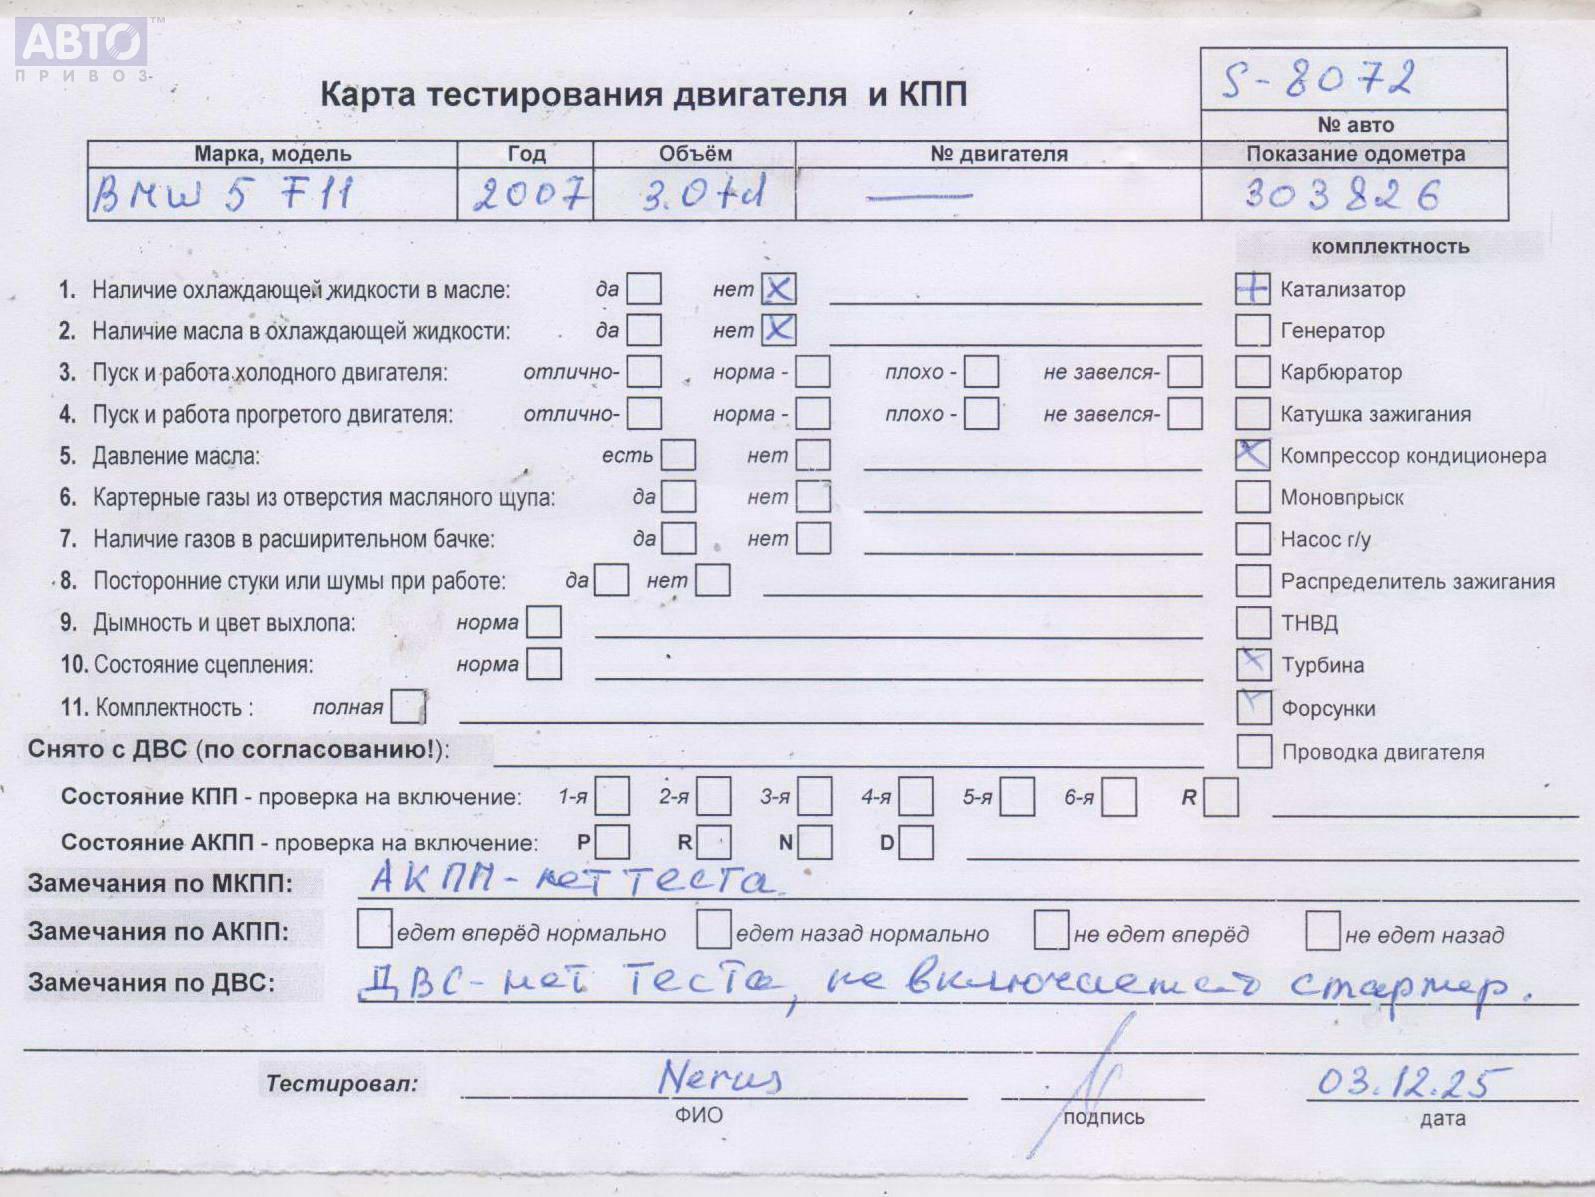 АВТО™
ПРИВОЗ
S-8072
Карта тестирования двигателя и КПП
№ авто
Марка, модель Год Объём № двигателя Показание одометра
BMW 5 F11 2007 3.0td — 303826
комплектность
1. Наличие охлаждающей жидкости в масле: да нет X Катализатор
2. Наличие масла в охлаждающей жидкости: да нет X Генератор
3. Пуск и работа холодного двигателя: отлично- норма - плохо - не завелся- Карбюратор
4. Пуск и работа прогретого двигателя: отлично- норма - плохо - не завелся- Катушка зажигания
5. Давление масла: есть нет Компрессор кондиционера
6. Картерные газы из отверстия масляного щупа: да нет Моновпрыск
7. Наличие газов в расширительном бачке: да нет Насос г/у
8. Посторонние стуки или шумы при работе: да нет Распределитель зажигания
9. Дымность и цвет выхлопа: норма ТНВД
10. Состояние сцепления: норма Турбина
11. Комплектность : полная Форсунки
Снято с ДВС (по согласованию!): Проводка двигателя
Состояние КПП - проверка на включение: 1-я 2-я 3-я 4-я 5-я 6-я R
Состояние АКПП - проверка на включение: P R N D
Замечания по МКПП: АКПП - нет теста.
Замечания по АКПП: едет вперёд нормально едет назад нормально не едет вперёд не едет назад
Замечания по ДВС: ДВС - нет теста, не включается стартер.
Тестировал: Nerus 03.12.25
ФИО подпись дата